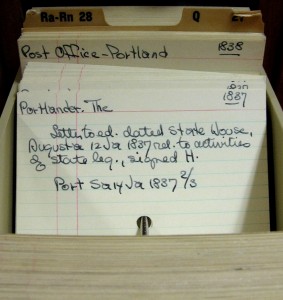 Ra-Rn 28
Q
Post Office-Portland 1838
1837
Portlander. The
Letter to ed. dated State House,
Augusta 12 Ja 1837 rel. to activities
of State leg., signed H.
Port Sa 14 Ja 1837 2/3